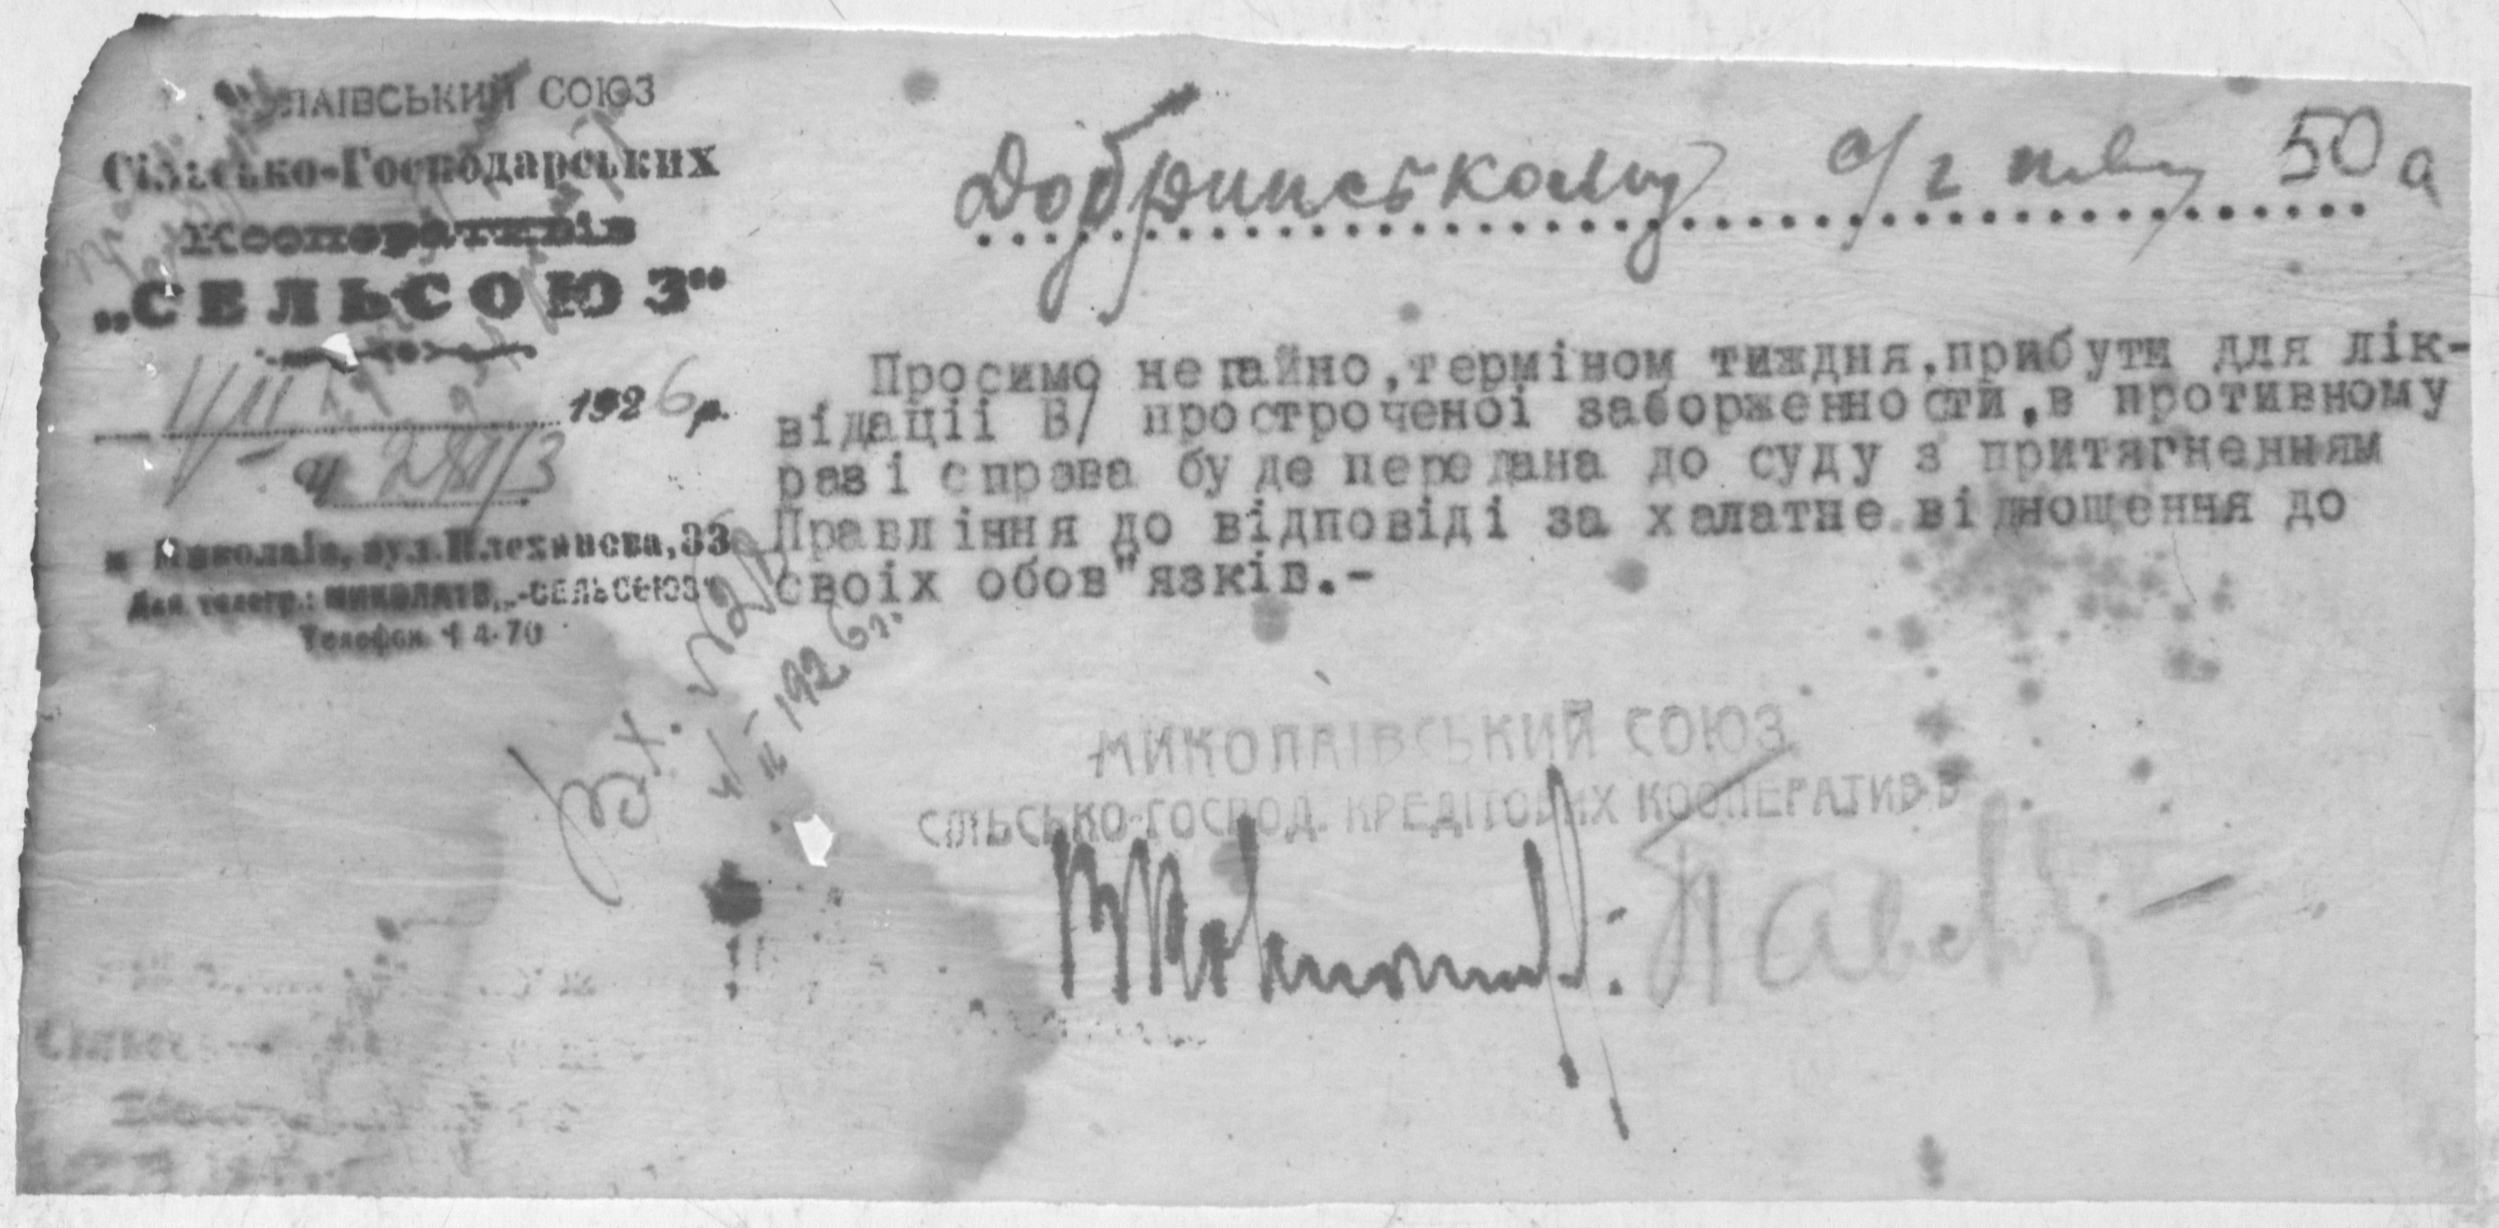 ЛАІВСЬКИЙ СОЮЗ
Сільсько-Господарських
Кооперативів
„СЕЛЬСОЮЗ“
1926 р.
м Миколаїв, вул. Плеханова, 33
Для телегр.: МИКОЛАЇВ, -СЕЛЬСОЮЗ"
Телефон 1 4-70
Добринському с/г 50 а
Просимо негайно,терміном тиждня,прибути для лік-
відації В/ простроченої заборженности,в противному
разі справа буде передана до суду з притягненням
Правління до відповіді за халатне відношення до
своїх обов"язків.-
Вх. №
4/II 1926 г.
МИКОЛАІВСЬКИЙ СОЮЗ
СІЛЬСЬКО-ГОСПОД. КРЕДІТОВИХ КООПЕРАТИВІВ